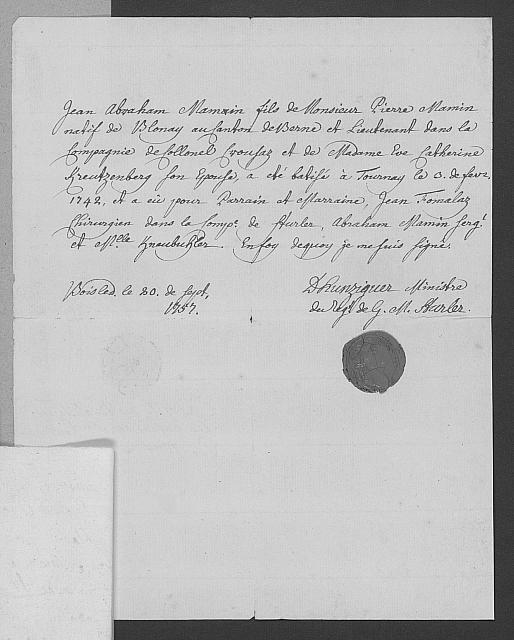 Jean Abraham Mamin fils de Monsieur Pierre Mamin
natif de Blonay au Canton de Berne et Lieutenant dans la
Compagnie de Collonel Crousaz et de Madame Eve Catherine
Kreutzenberg son Epouse, a été batisé à Tournay le 3. de fevr.
1742, et a eü pour Parrain et Marraine, Jean Tomalaz
Chirurgien dans la Comp.e de Sturler, Abraham Mamin serg.t
et M.lle Kneubuhler. En foy dequoy je me suis signé.
Boisled, le 20. de sept.
1757.
D Hunziguer Ministre
du Reg.t de G. M. Sturler.